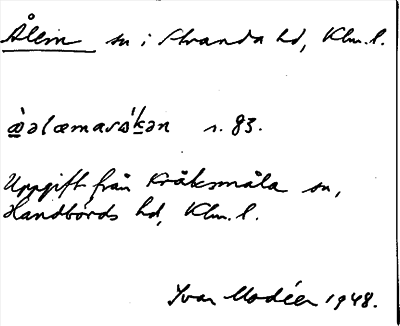 Ålem sn i Stranda hd, Klm. l.
æ̀əlæmasɷ́kən s. 83.
Uppgift från Kråksmåla sn,
Handbörds hd, Klm. l.
Ivar Modéer 1948.